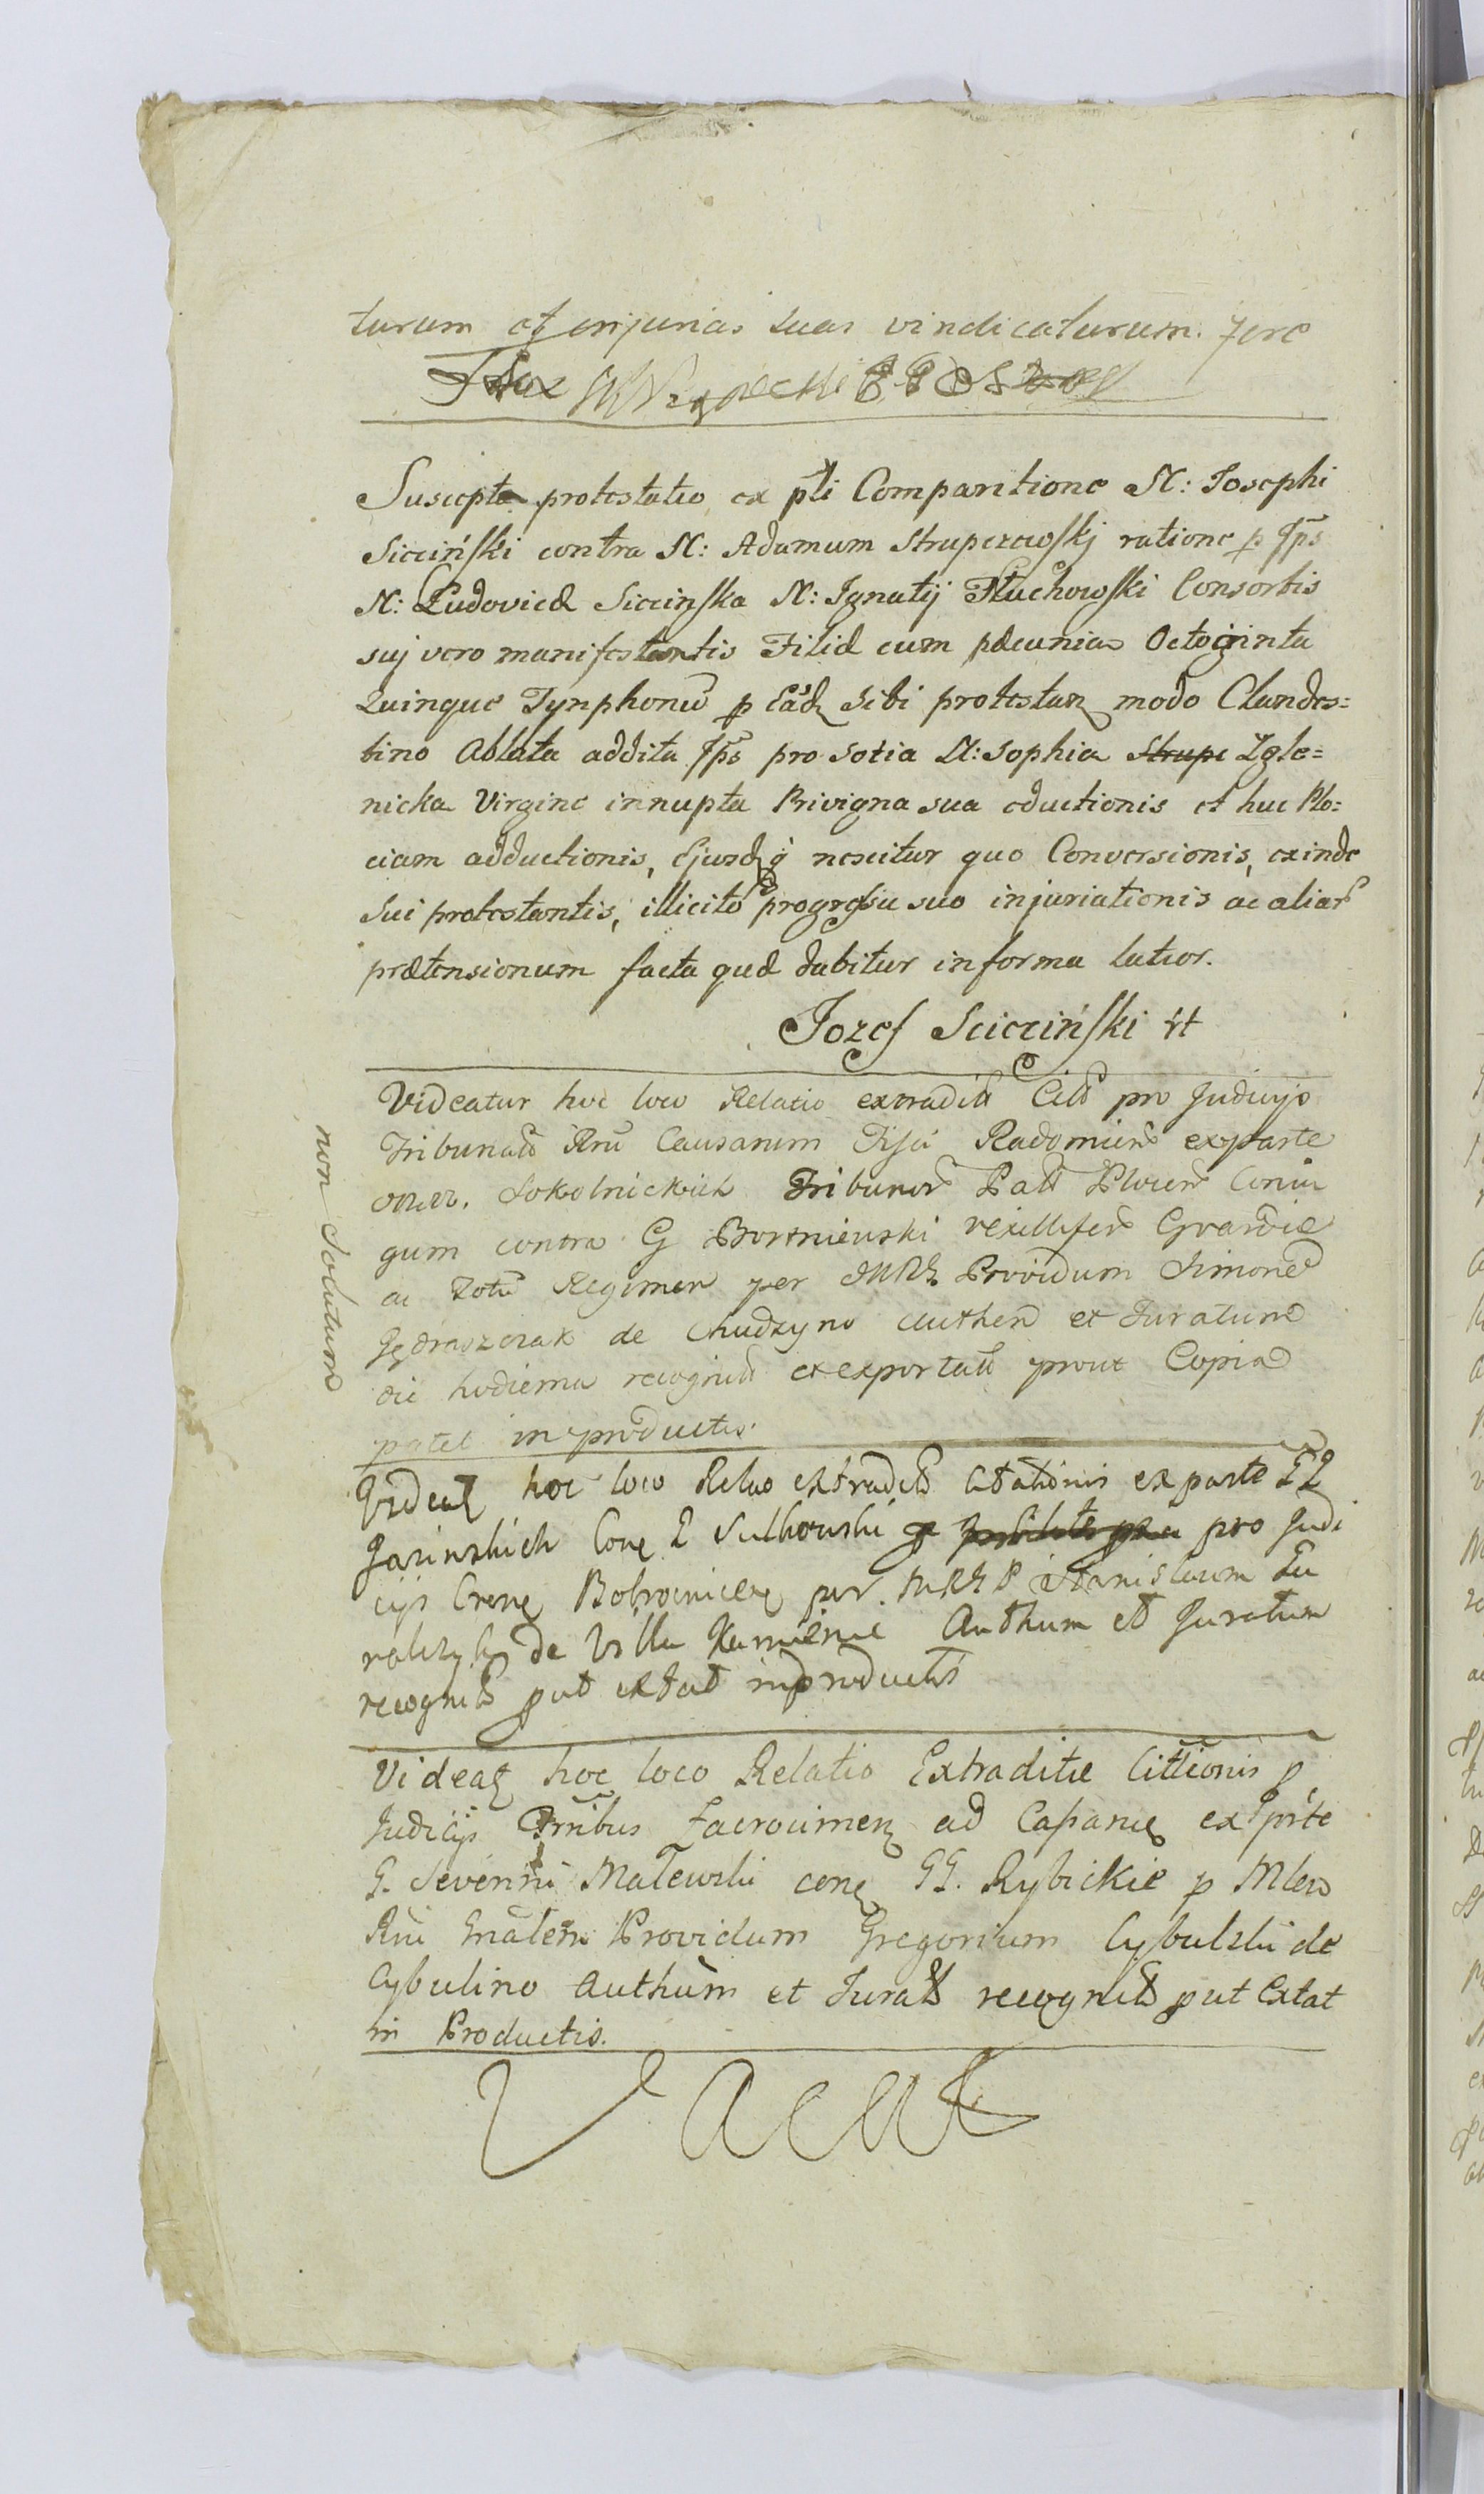 turum et injurias suas vindicaturum. fore
Suscepta protestatio ex pti Comparitione N: Josephi
Sicciński contra N: Adamum Strupczewskj ratione p Jps
N: Ludovicæ Siccinska N: Ignatij Tłuchowski Consortis
suj vero manifestantis Filiæ cum pæcunia Octoginta
Quinque Tynphonũ p Eãd sibi protestan modo Clandes=
tino Ablata addita Jps pro sotia N: Sophia Strupc Zgle=
nicka Virgine innupta Privigna sua eductionis et huc Plo=
ciam adductionis, Ejusdq nescitur quo Conversionis, exinde
sui protestantis, illicito progressu suo injuriationis ac aliar
prætensionum facta quæ dabitur in forma latior.
Jozef Scicciński
Videatur hoc loco Relatio extradit Cit pro Judicijs
Tribunal Rni Causarum Fisci Radomien ex parte
Sokolnickich Tribunor Palt Plocen Coniu
gum contra G Bortniewski vexillifer Gvardie
ac Totu Regimen per MRG Providum Simone
Jędraszczak de Chudzyno Authen et Juratum
die hodierna recognit et exportatt prout Copia
patet in productis.
non Solutum
Videat hoc loco Relao extradit Citationis ex parte GG
Jasinskich Con G Sulkowski pro Judi
cijs Crens Bobrownicen per MRG P Stanislaum
de Villa Kamienie Authum et Juratum
recognit put extat in productis
Videat hoc loco Relatio Extraditæ Cittionis p
Judicijs Zacrocimen ad Capanes ex prte
G. Severini Malewski cone GG. Rybickie p Mlem
Rni Gnalem Providum Gregorium Cybulski de
Cybulino Authum et Jurat recognit put Extat
in Productis.
Vacat